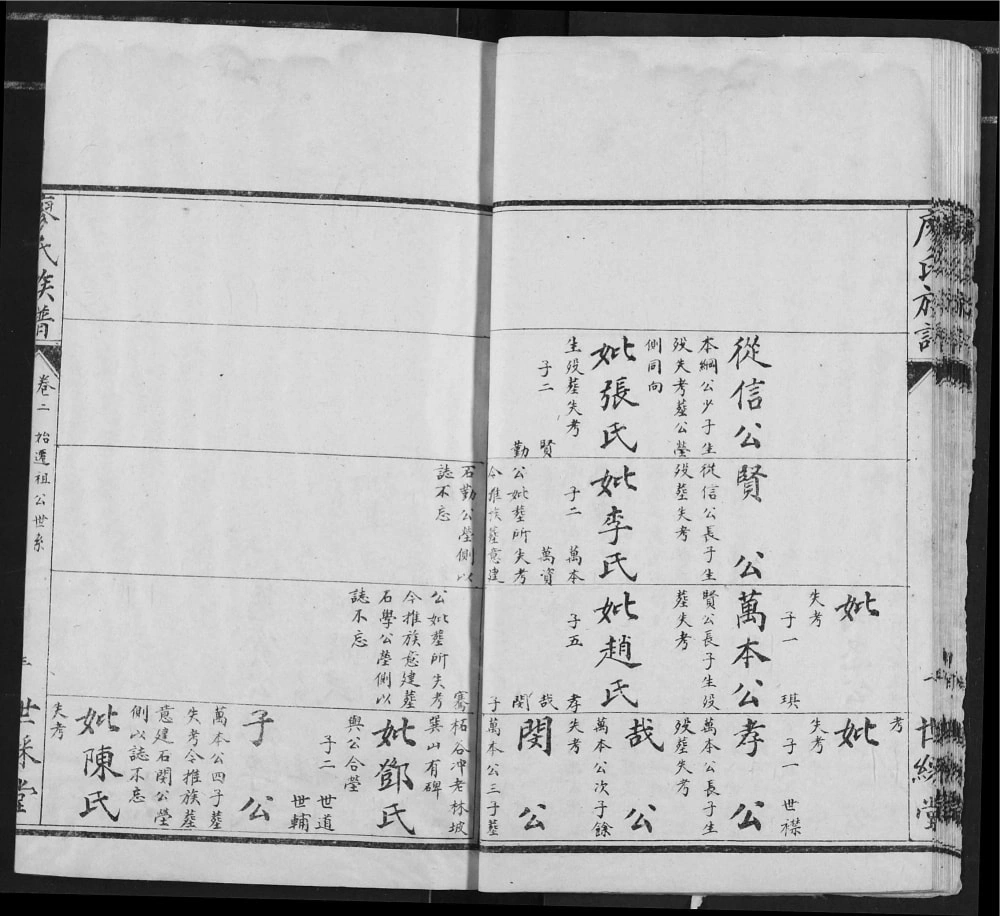 廖氏族譜
世綵堂
從信公
本綱公少子生
歿失考塟公塋
側同向
妣張氏
生歿塟失考
子二　賢
勤
賢公
從信公長子生
歿塟失考
妣李氏
子二　萬本
萬資
公妣塟所失考
今推族塟意建
石勤公塋側以
誌不忘
妣
失考
子一　琪
萬本公
賢公長子生歿
塟失考
妣趙氏
子五　孝
哉
閔
子
騫
公妣塟所失考
今推族意建塟
石學公塋側以
誌不忘
考
妣
失考
子一　世襟
孝公
萬本公長子生
歿塟失考
哉公
萬本公次子餘
失考
閔公
萬本公三子塟
柘谷冲老林坡
巽山有碑
妣鄧氏
與公合塋
子二　世道
世輔
子公
萬本公四子塟
失考今推族塟
意建石閔公塋
側以誌不忘
妣陳氏
失考
廖氏族譜
卷二　始遷祖公世系
三
世綵堂